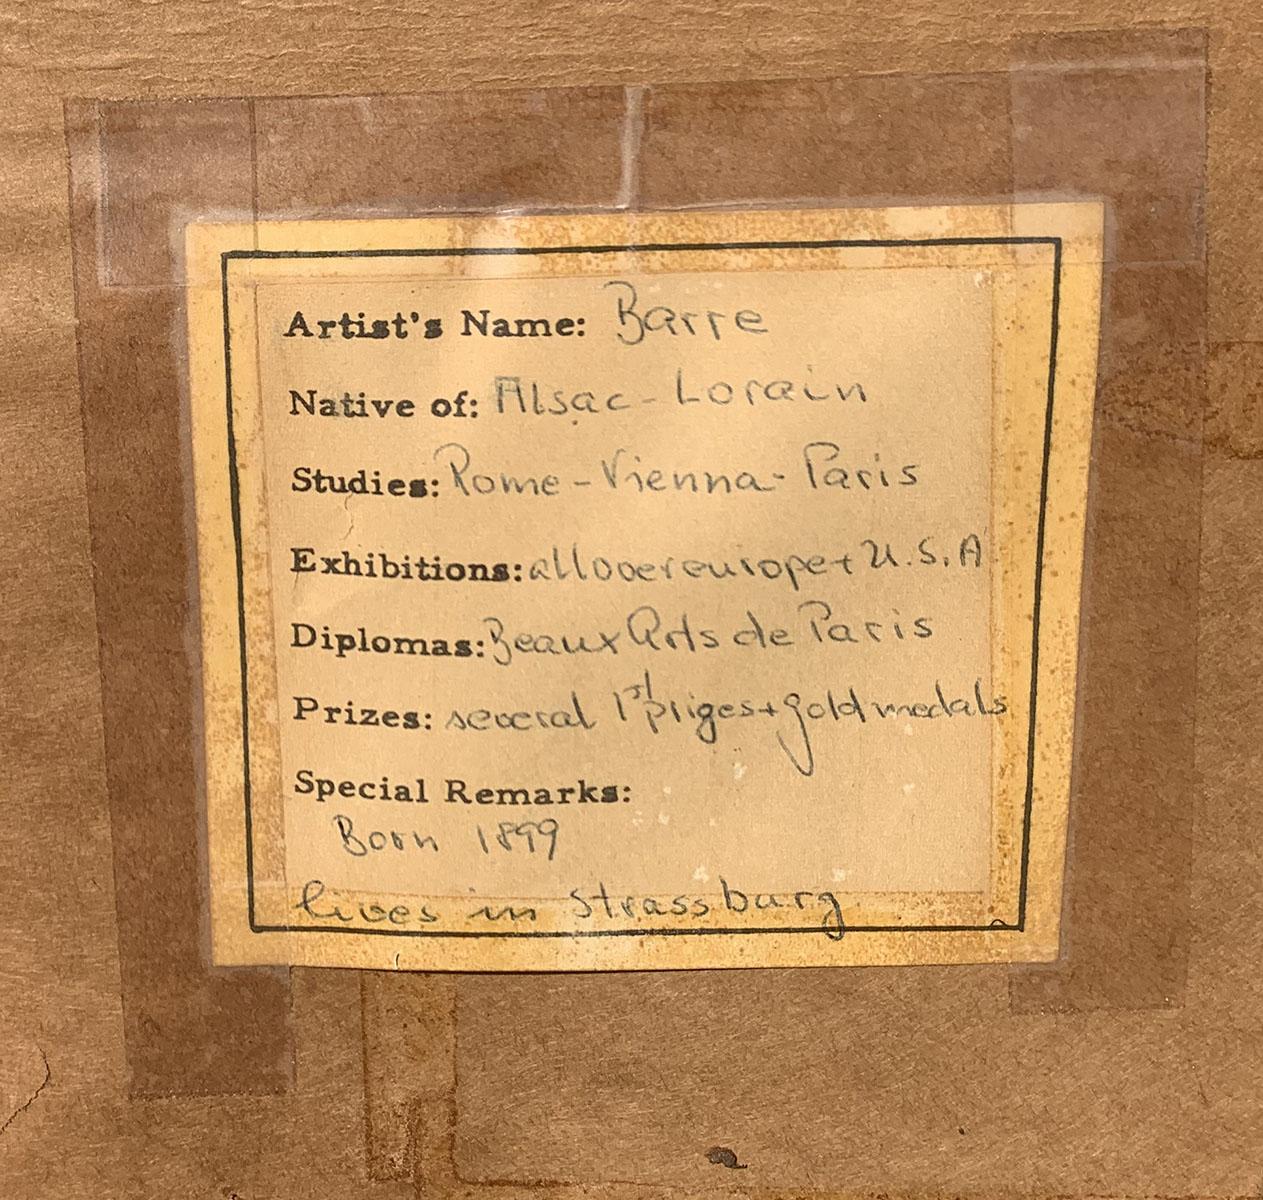 Artist's Name: Barre
Native of: Alsac-Lorain
Studies: Rome-Vienna-Paris
Exhibitions: all over europe + U.S.A
Diplomas: Beaux Arts de Paris
Prizes: several 1st priges + gold medals
Special Remarks:
Born 1899
lives in Strassburg